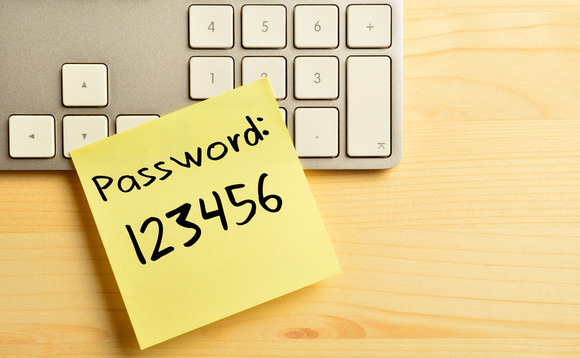 4 5 6 +
1 2 3
.
Password:
123456